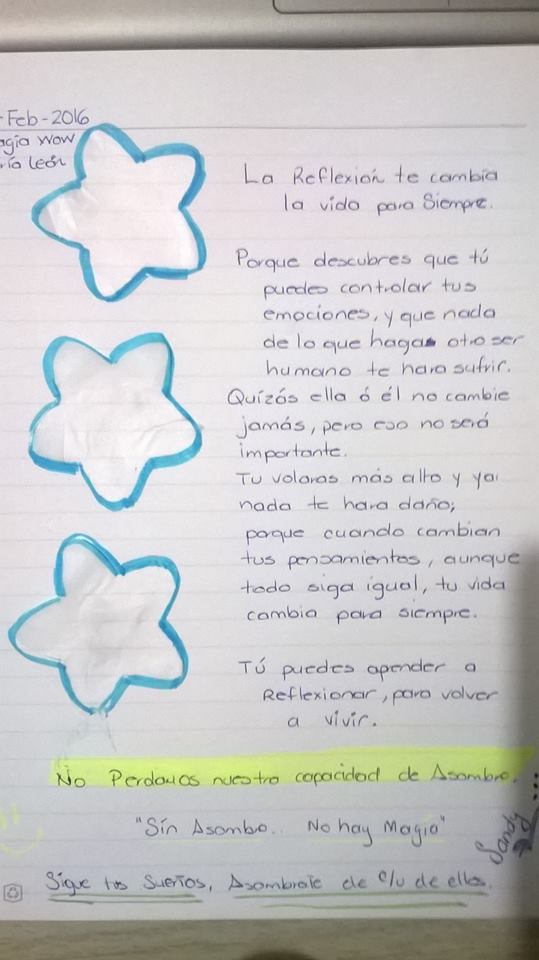 -Feb-2016
agía wow
ría león
La Reflexión te cambia
la vida para Siempre.
Porque descubres que tú
puedes controlar tus
emociones, y que nada
de lo que hagas otro ser
humano te hara sufrir.
Quízás ella ó él no cambie
jamás, pero eso no será
importante.
Tu volaras más alto y ya
nada te hara daño;
porque cuando cambian
tus pensamientos, aunque
todo siga igual, tu vida
cambia para siempre.
TÚ puedes apender a
Reflexionar, para volver
a vivir.
No Perdamos nuestra capacidad de Asombro.
"Sín Asombo.. No hay Magia"
Sandy
Sigue tus Sueños, Asombrate de c/u de ellos.